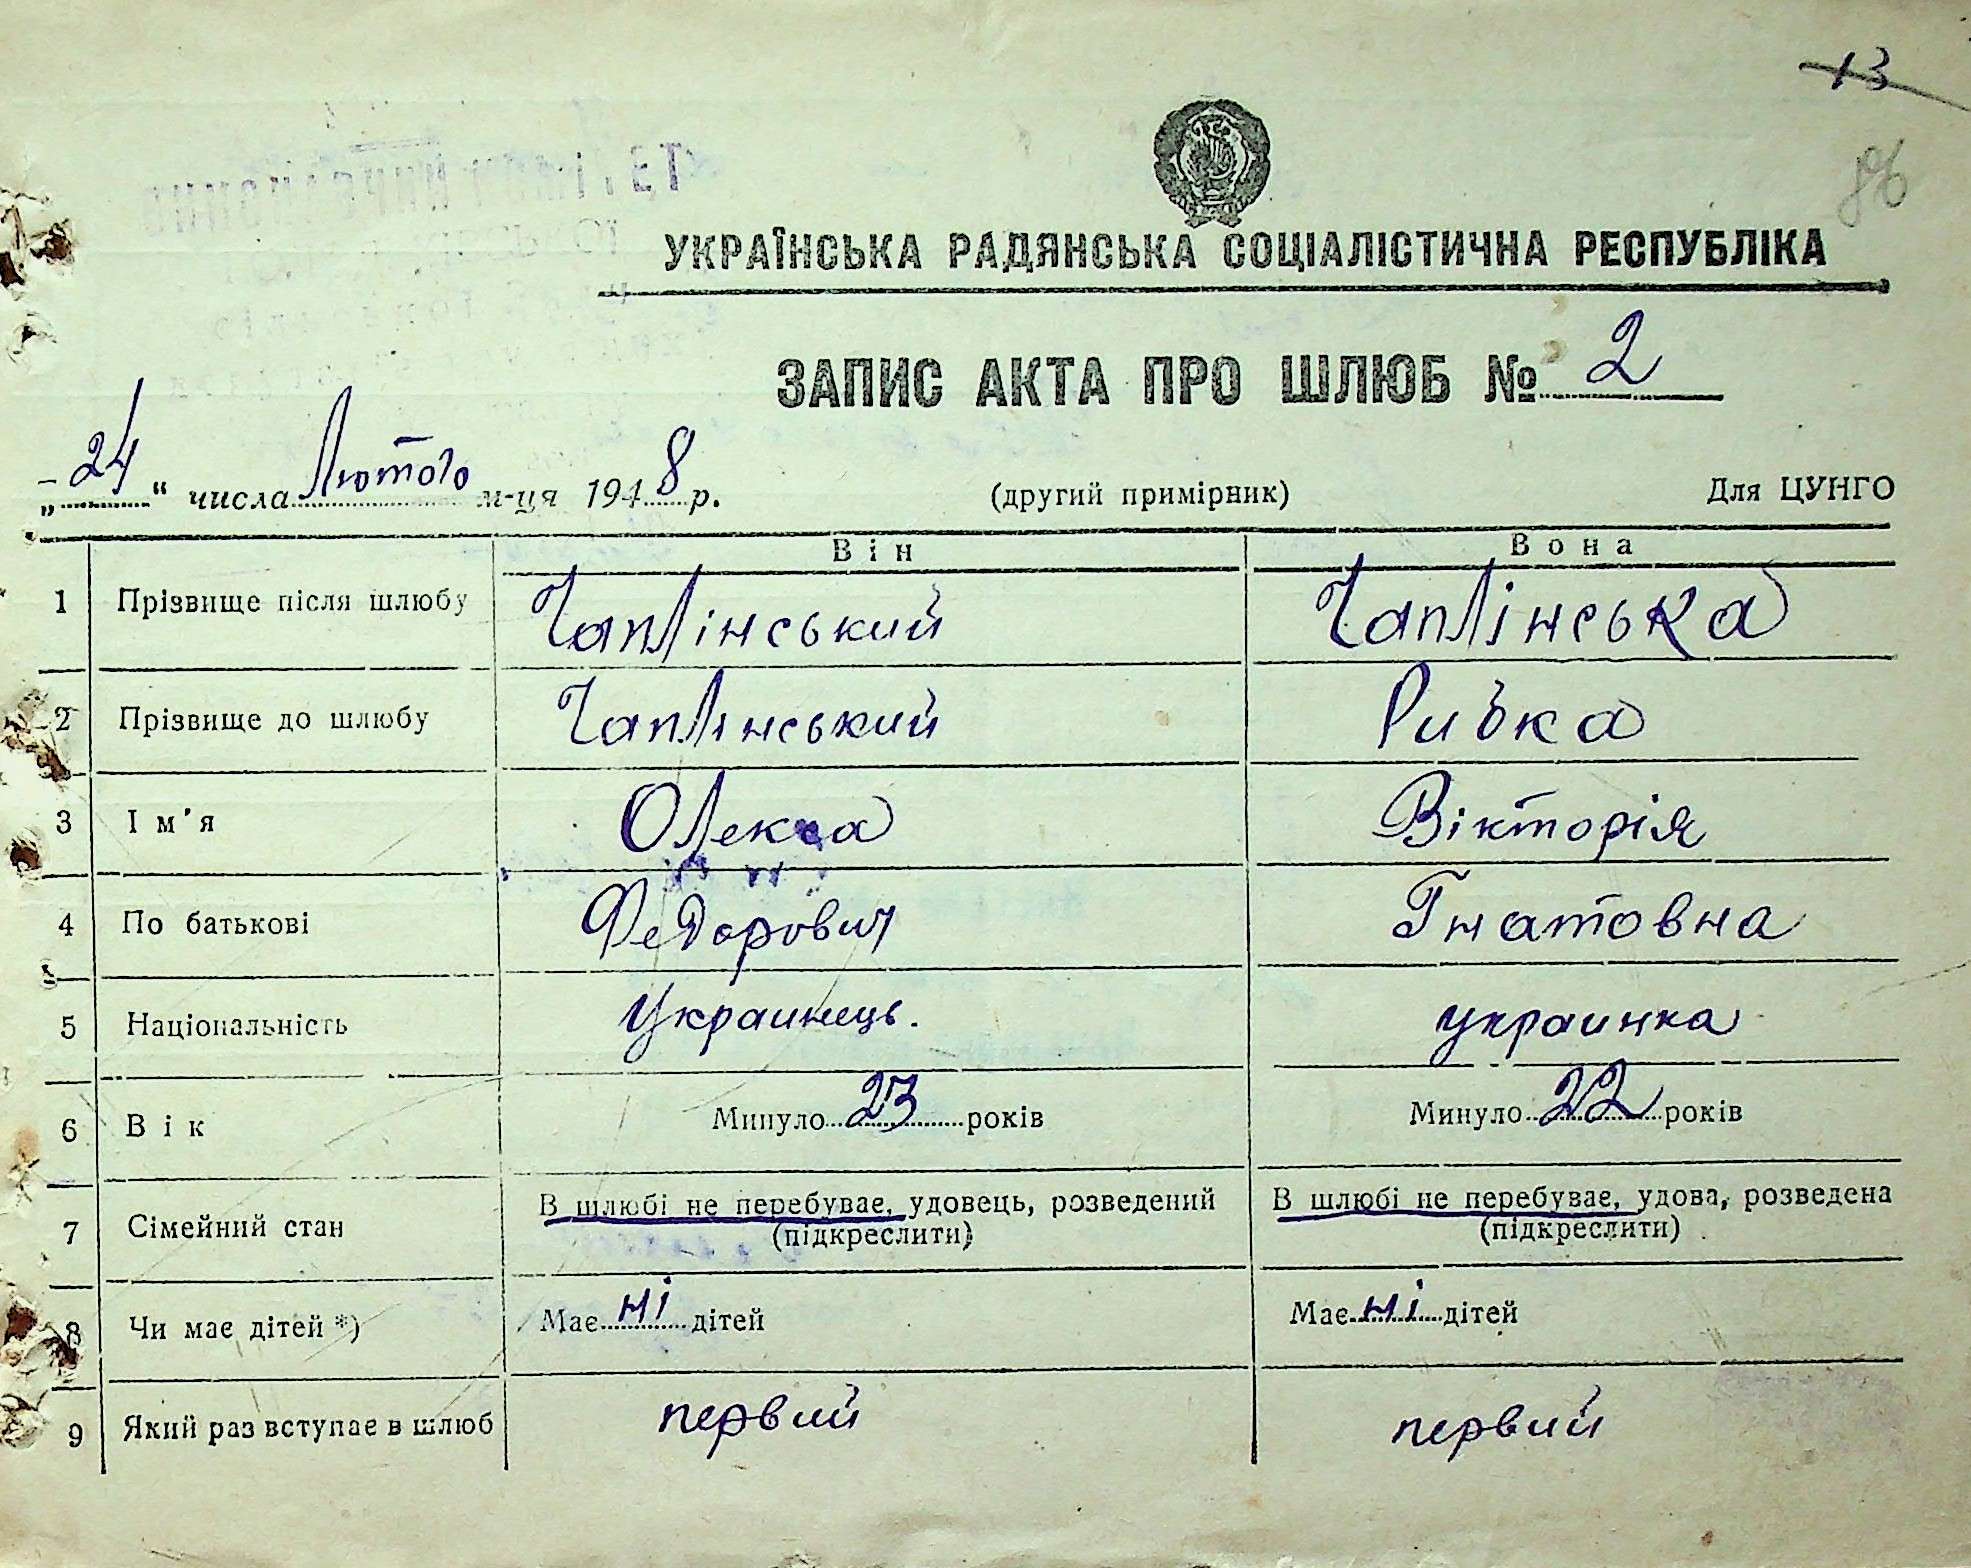 13
86
УКРАЇНСЬКА РАДЯНСЬКА СОЦІАЛІСТИЧНА РЕСПУБЛІКА
ЗАПИС АКТА ПРО ШЛЮБ № 2
„24“ числа Лютого м-ця 1948 р. (другий примірник) Для ЦУНГО
Він Вона
1 Прізвище після шлюбу Чаплінський Чаплінська
2 Прізвище до шлюбу Чаплінський Рибка
3 Ім'я Олекса Вікторія
4 По батькові Федорович Гнатовна
5 Національність Украинець. украинка
6 Вік Минуло 23 років Минуло 22 років
7 Сімейний стан В шлюбі не перебуває, удовець, розведений В шлюбі не перебуває, удова, розведена
(підкреслити) (підкреслити)
8 Чи має дітей *) Має ні дітей Має ні дітей
9 Який раз вступає в шлюб первий первий